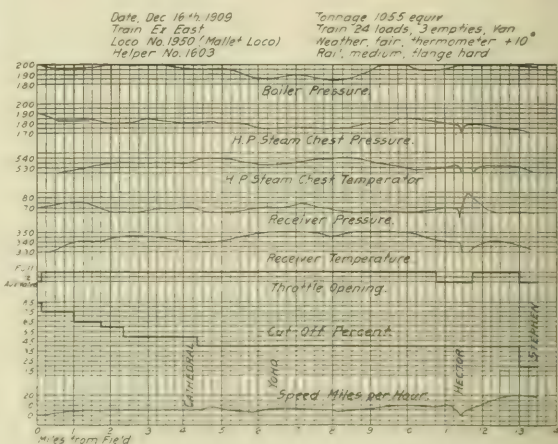 Date, Dec 16th 1909
Train Ex East
Loco No. 1950 (Mallet Loco)
Helper No. 1603
Tonnage 1055 equiv
Train 24 loads, 3 empties, Van
Weather, fair, thermometer +10°
Rail, medium, flange hard
200
190
180
Boiler Pressure.
200
190
180
170
H.P Steam Chest Pressure.
540
530
H P Steam Chest Temperator
80
70
Receiver Pressure.
350
340
330
Receiver Temperature.
Full
Throttle Opening.
85
75
65
55
45
35
25
15
Cut-Off Percent.
CATHEDRAL
YOHO
HECTOR
STEPHEN
Speed Miles per Hour.
20
10
0
0 1 2 3 4 5 6 7 8 9 10 11 12 13 14
Miles from Field